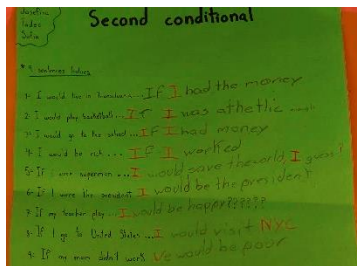 Second conditional
1- I would live in ... If I had the money
2- I would play basketball... If I was athetlic
3- I would go to the ... If I had money
4- I would be rich.... If I worked
5- If I were superman.... I would save the world, I guess?
6- If I were the president I would be the president
7- If my teacher play... I would be happy??????
8- If I go to United States... I would visit NYC
9- If my mom didn't work We would be poor